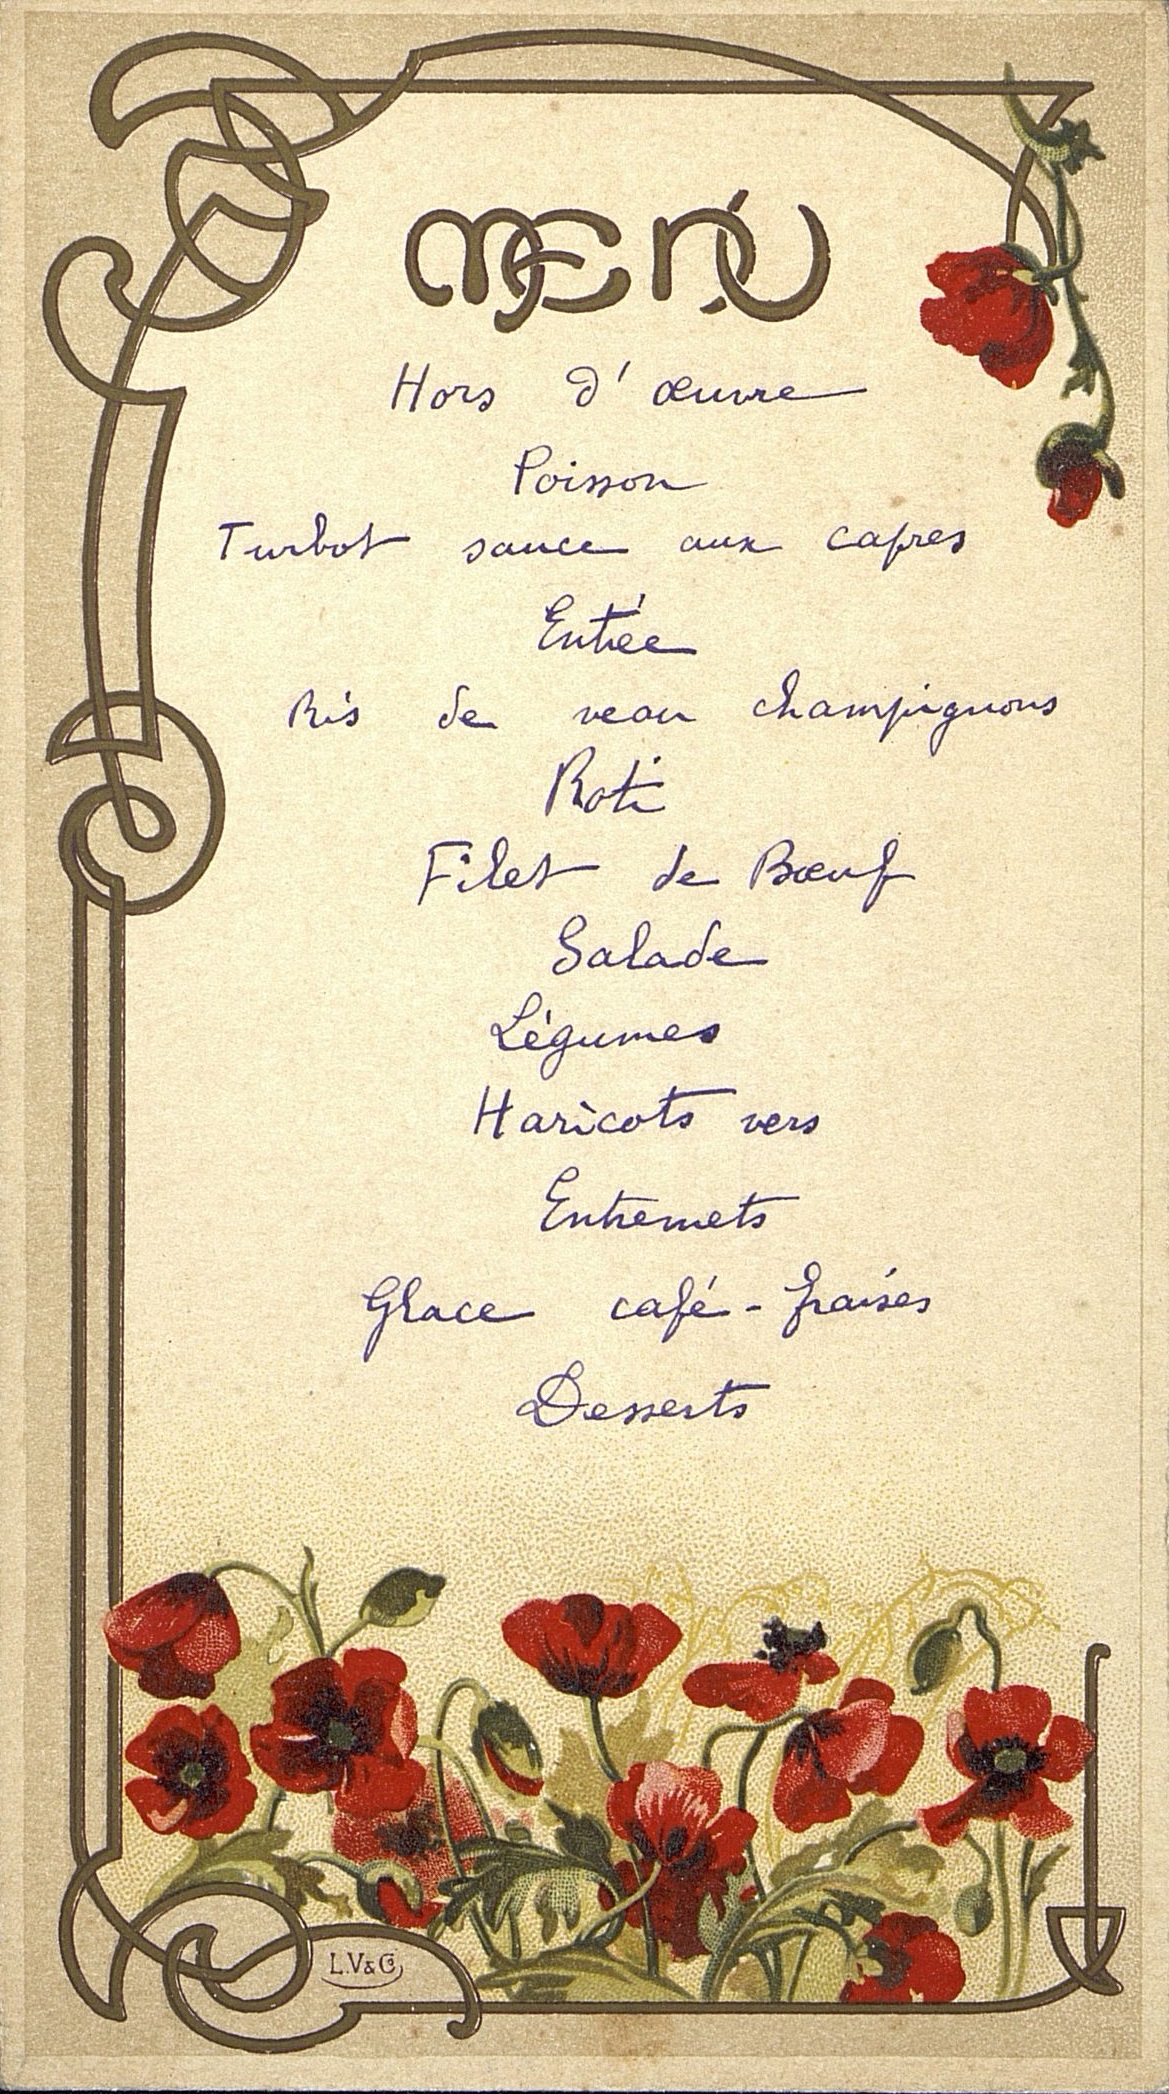 MENU
Hors d'œuvre
Poisson
Turbot sauce aux capres
Entrée
Ris de veau champignons
Roti
Filet de Bœuf
Salade
Légumes
Haricots vers
Entremets
Glace café - fraises
Desserts
L.V & Cᵒ